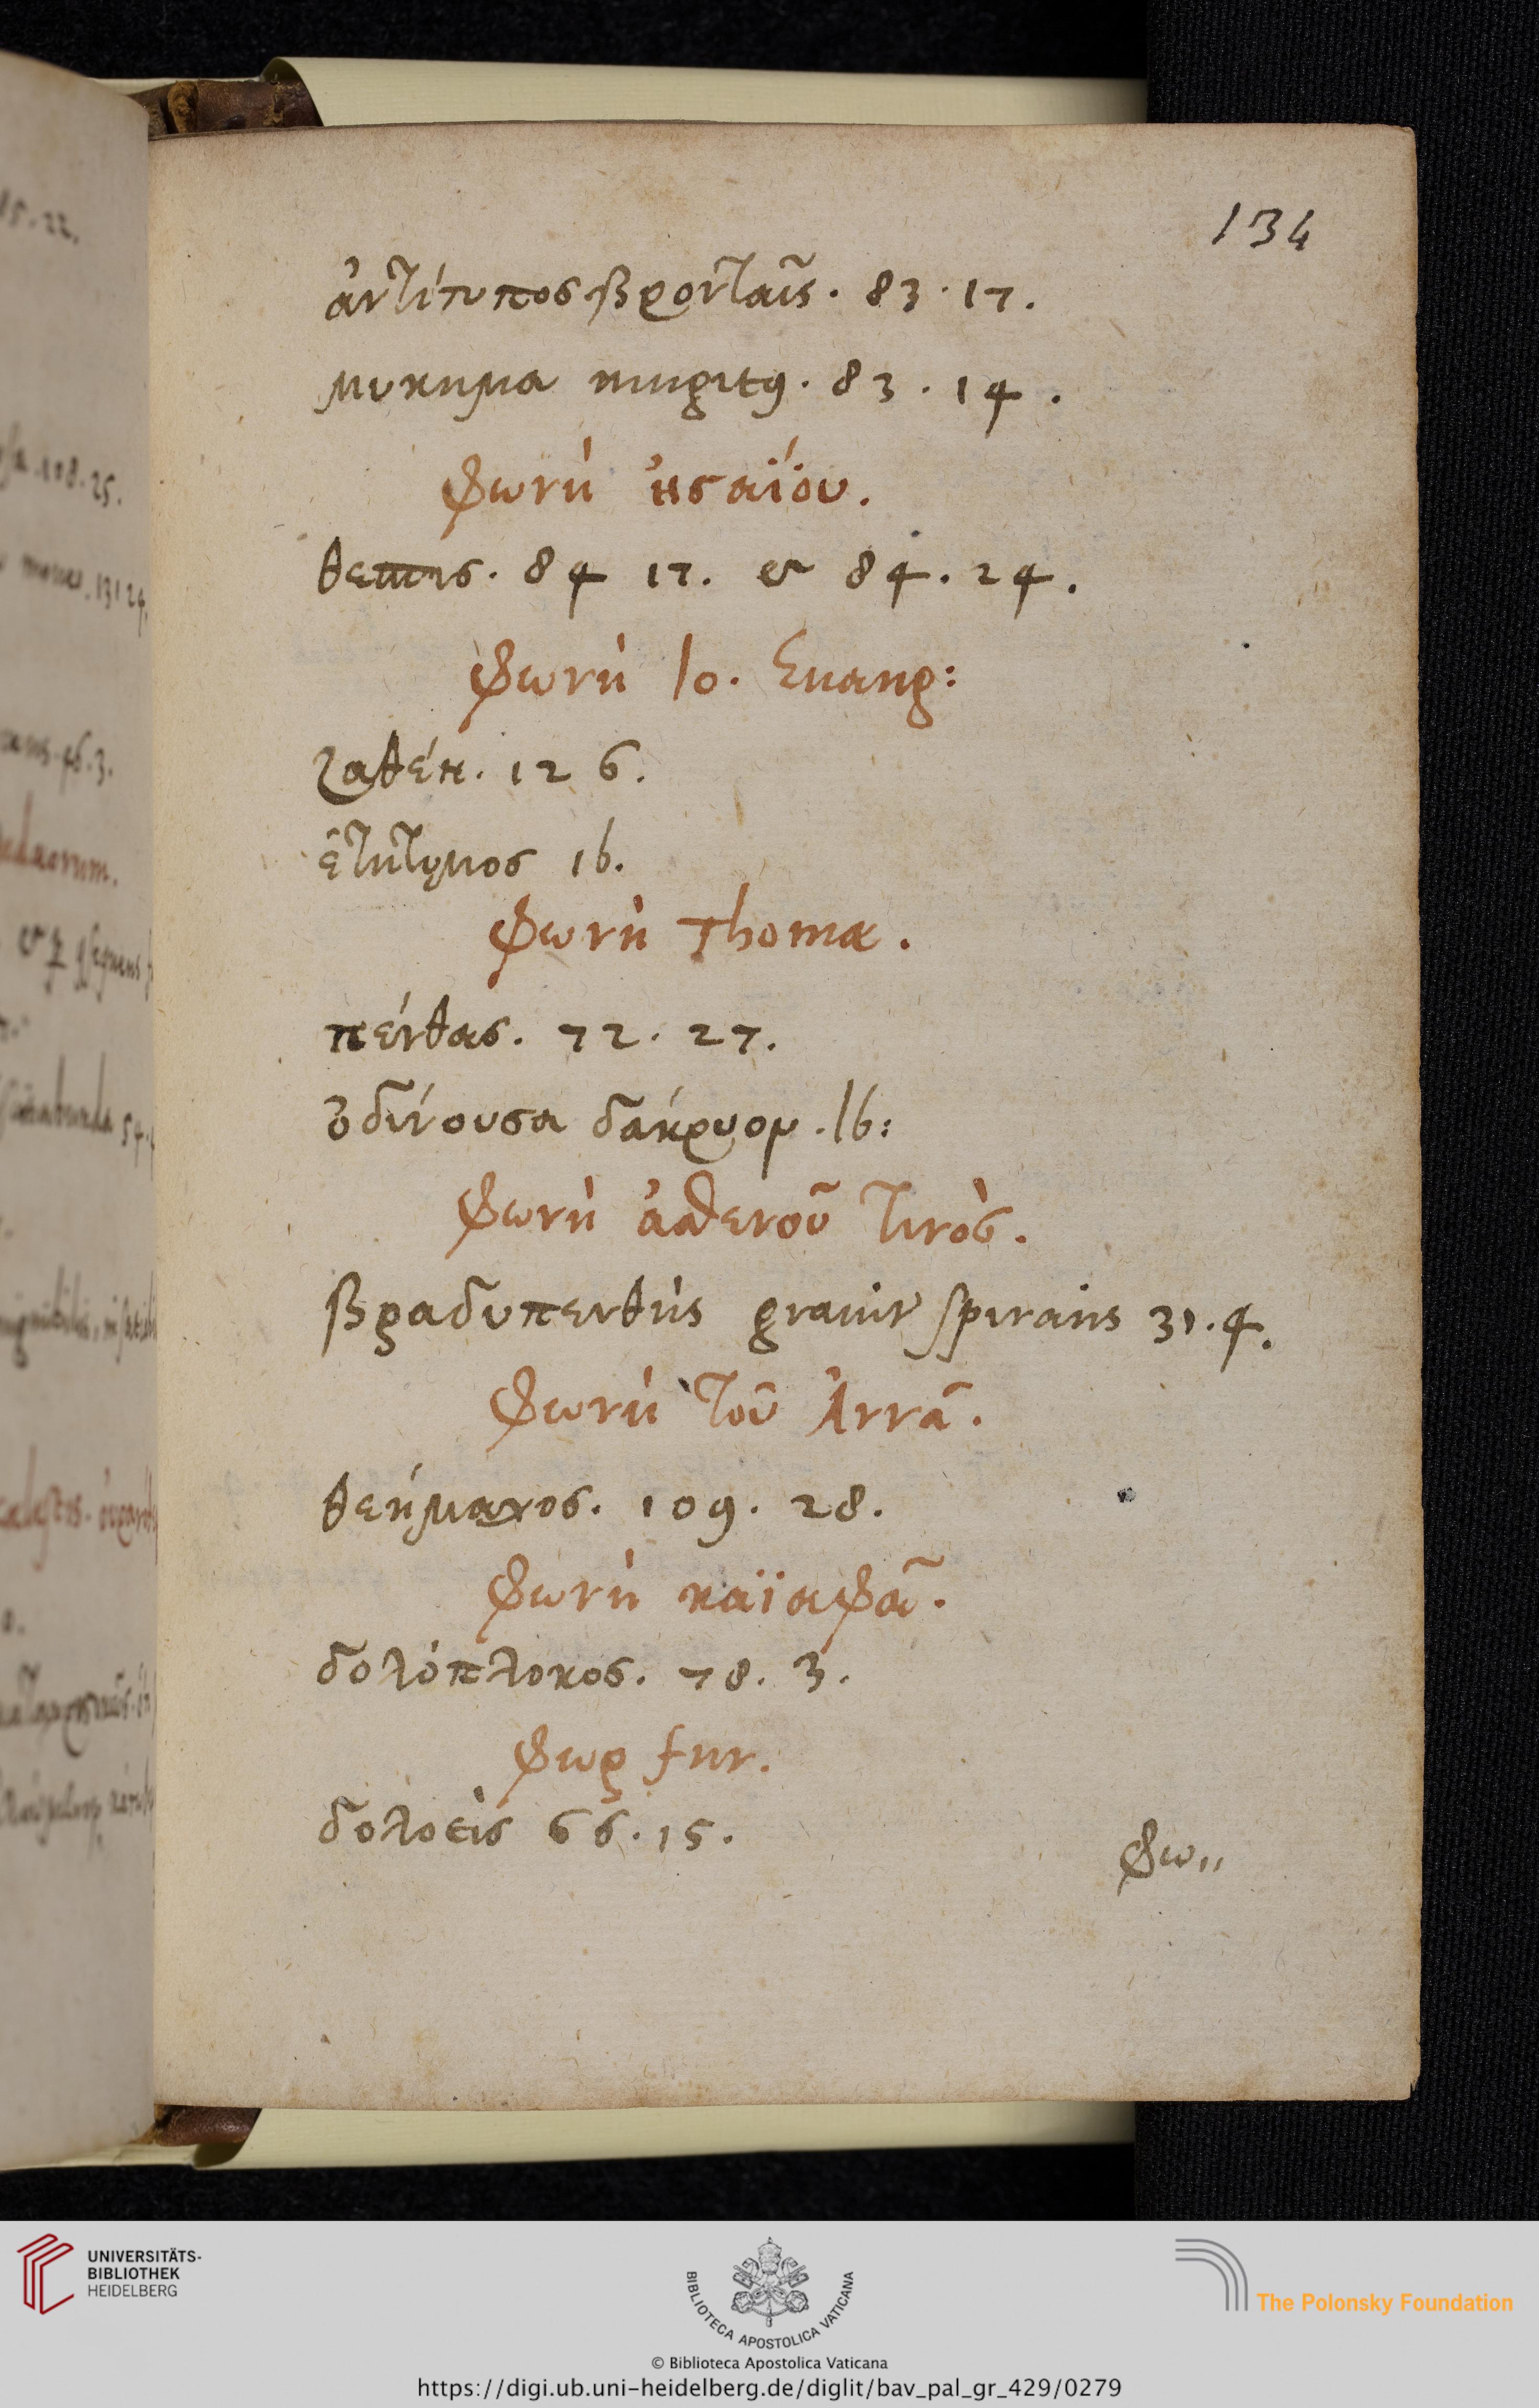 134
ἀντίτυπος βρονταῖς. 83. 17.
μυκημα mugitꝰ. 83. 14.
φωνὴ ἠσαΐου.
θεμις. 84 17. & 84. 24.
φωνὴ Io. Euang:
ζαθέη. 12 6.
ἐτήτυμος ib.
φωνὴ Thomæ.
πένθας. 72. 27.
ὀδίνουσα δάκρυον. Ib:
φωνὴ ἀσθενοῦ τινὸς.
βραδυπενθὴς grauit spirans 31. 4.
φωνὴ τοῦ Ἀννᾶ.
θεήμαχος. 109. 28.
φωνὴ καϊαφᾶ.
δολόπλοκος. 78. 3.
φωρ fur.
δολοεὶς 66. 15.
φω
UNIVERSITÄTS-
BIBLIOTHEK
HEIDELBERG
BIBLIOTECA APOSTOLICA VATICANA
The Polonsky Foundation
© Biblioteca Apostolica Vaticana
https://digi.ub.uni-heidelberg.de/diglit/bav_pal_gr_429/0279